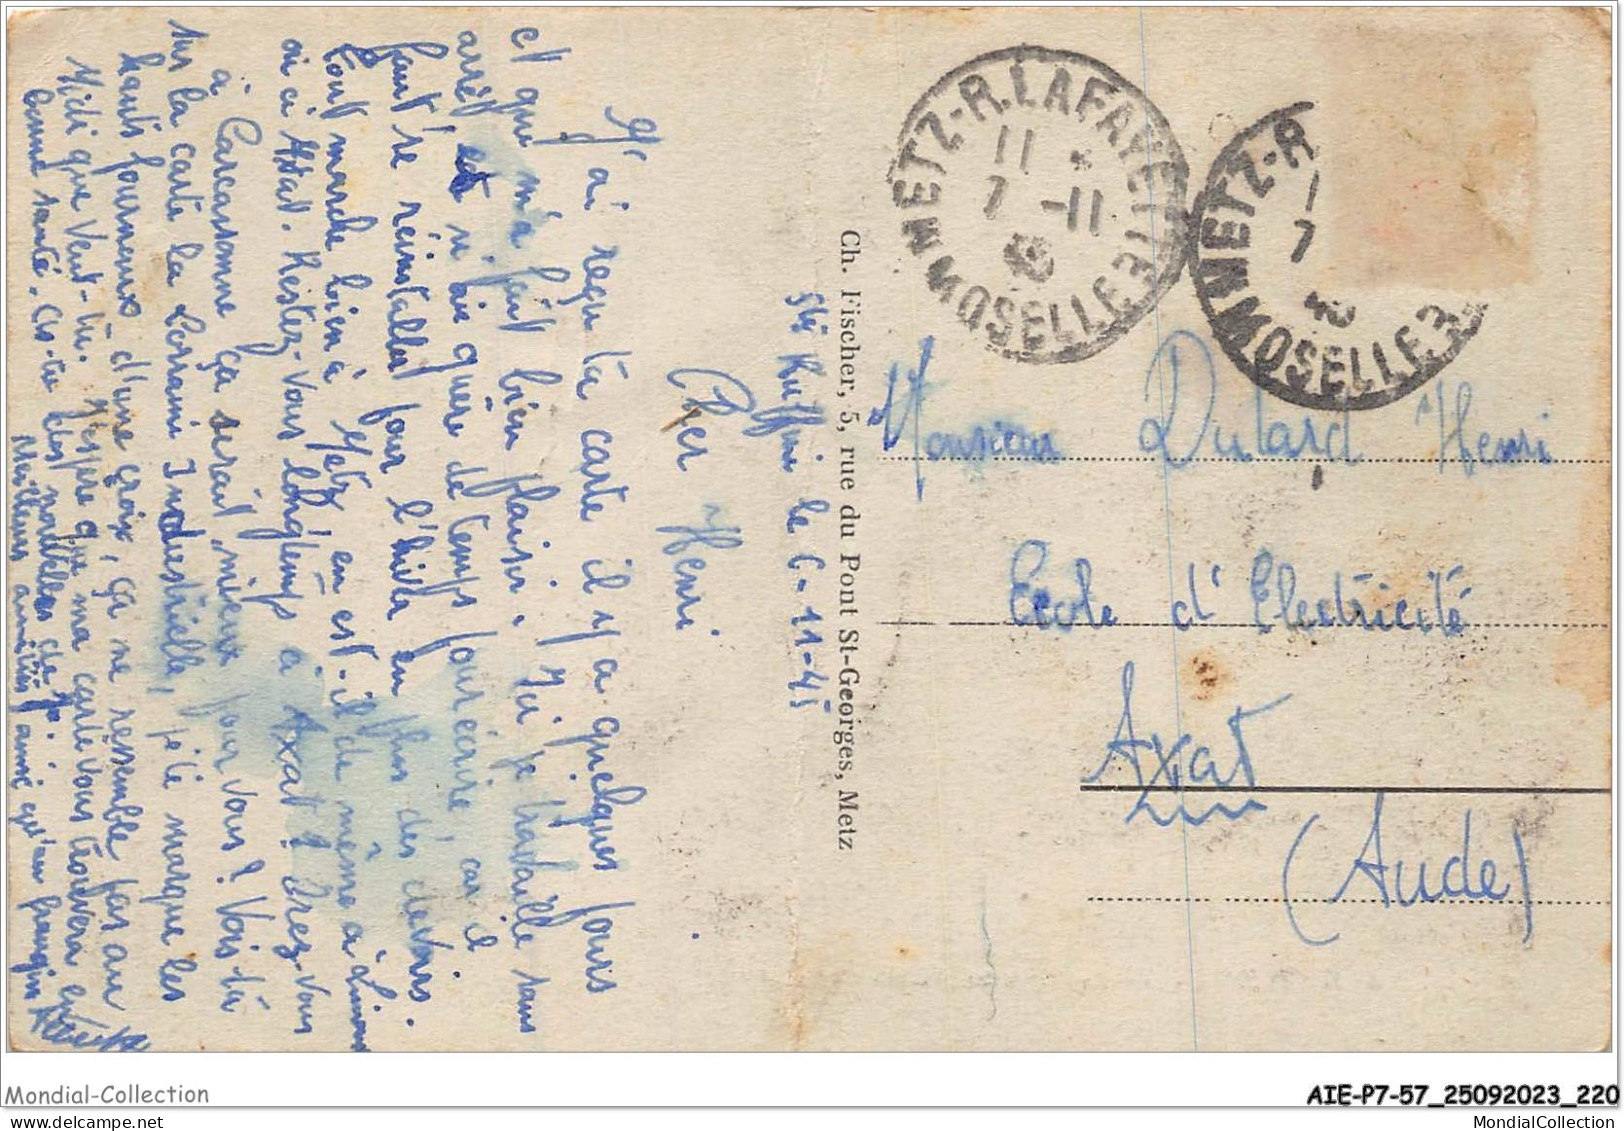 Ste Ruffine le 6-11-45
Cher Henri
J'ai reçu ta carte il y a quelques jours
et qui m'a fait bien plaisir. Ici je travaille sans
arrêt et n'ai guère de temps pour écrire, car il
faut se réinstaller pour l'hiver en plus des devoirs.
Tout marche bien à Metz en est-il de même à Limoux
ou ci Axat. Restez-vous longtemps à Axat? Irez-vous
à Carcassonne ça serait mieux pour vous? Vois-tu
sur la carte la Lorraine Industrielle, je te marque les
hauts fourneaux d'une croix, ça ne ressemble pas au
Midi que Veut-tu. J'espère que ma carte vous trouvera en
bonne santé. As-tu des nouvelles de
Meilleurs amitiés ainsi qu'au frangin
Ch. Fischer, 5, rue du Pont St-Georges, Metz
METZ-R.LAFAYETTE
11 *
7 -11
45
MOSELLE
METZ-R
1
7
45
MOSELLE
Monsieur Dulard Henri
Ecole d'Electricité
Axat
(Aude)
Mondial-Collection
AIE-P7-57_25092023_220
MondialCollection.com